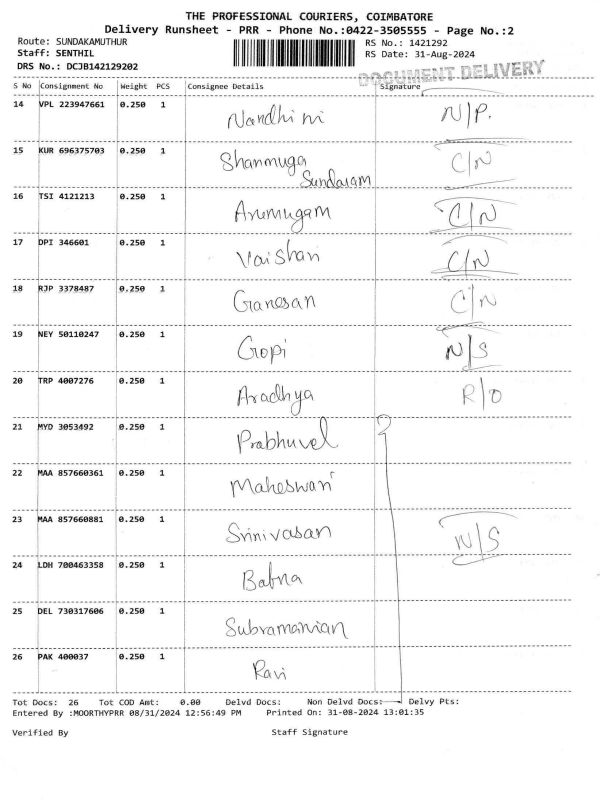 THE PROFESSIONAL COURIERS, COIMBATORE
Delivery Runsheet - PRR - Phone No.:0422-3505555 - Page No.:2
Route: SUNDAKAMUTHUR RS No.: 1421292
Staff: SENTHIL RS Date: 31-Aug-2024
DRS No.: DCJB142129202
DOCUMENT DELIVERY
S No Consignment No Weight PCS Consignee Details Signature
14 VPL 223947661 0.250 1 Nandhini N/P.
15 KUR 696375703 0.250 1 Shanmuga C/N
Sundaram
16 TSI 4121213 0.250 1 Arumugam C/N
17 DPI 346601 0.250 1 Vaishari C/N
18 RJP 3378487 0.250 1 Ganesan C/N
19 NEY 50110247 0.250 1 Gopi N/S
20 TRP 4007276 0.250 1 Aradhya R/O
21 MYD 3053492 0.250 1 Prabhuvel
22 MAA 857660361 0.250 1 Maheswari
23 MAA 857660881 0.250 1 Srinivasan N/S
24 LDH 700463358 0.250 1 Babna
25 DEL 730317606 0.250 1 Subramanian
26 PAK 400037 0.250 1 Ravi
Tot Docs: 26 Tot COD Amt: 0.00 Delvd Docs: Non Delvd Docs: Delvy Pts:
Entered By :MOORTHYPRR 08/31/2024 12:56:49 PM Printed On: 31-08-2024 13:01:35
Verified By Staff Signature